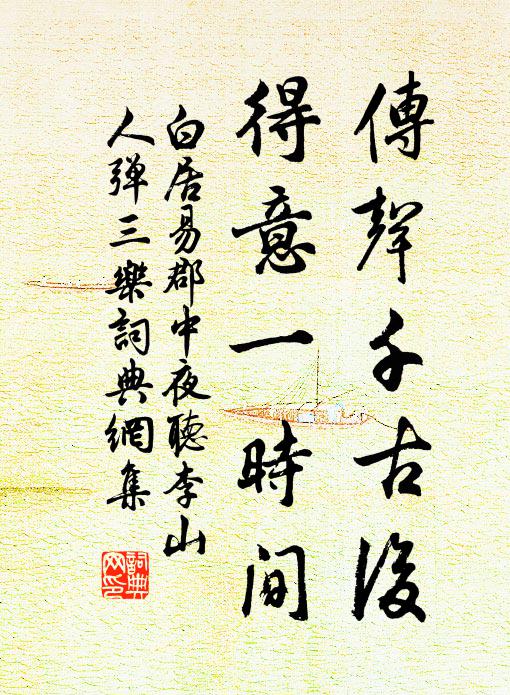 傳聲千古後
得意一時間
白居易郡中夜聽李山
人弹三樂詞典網集
詞典
网印